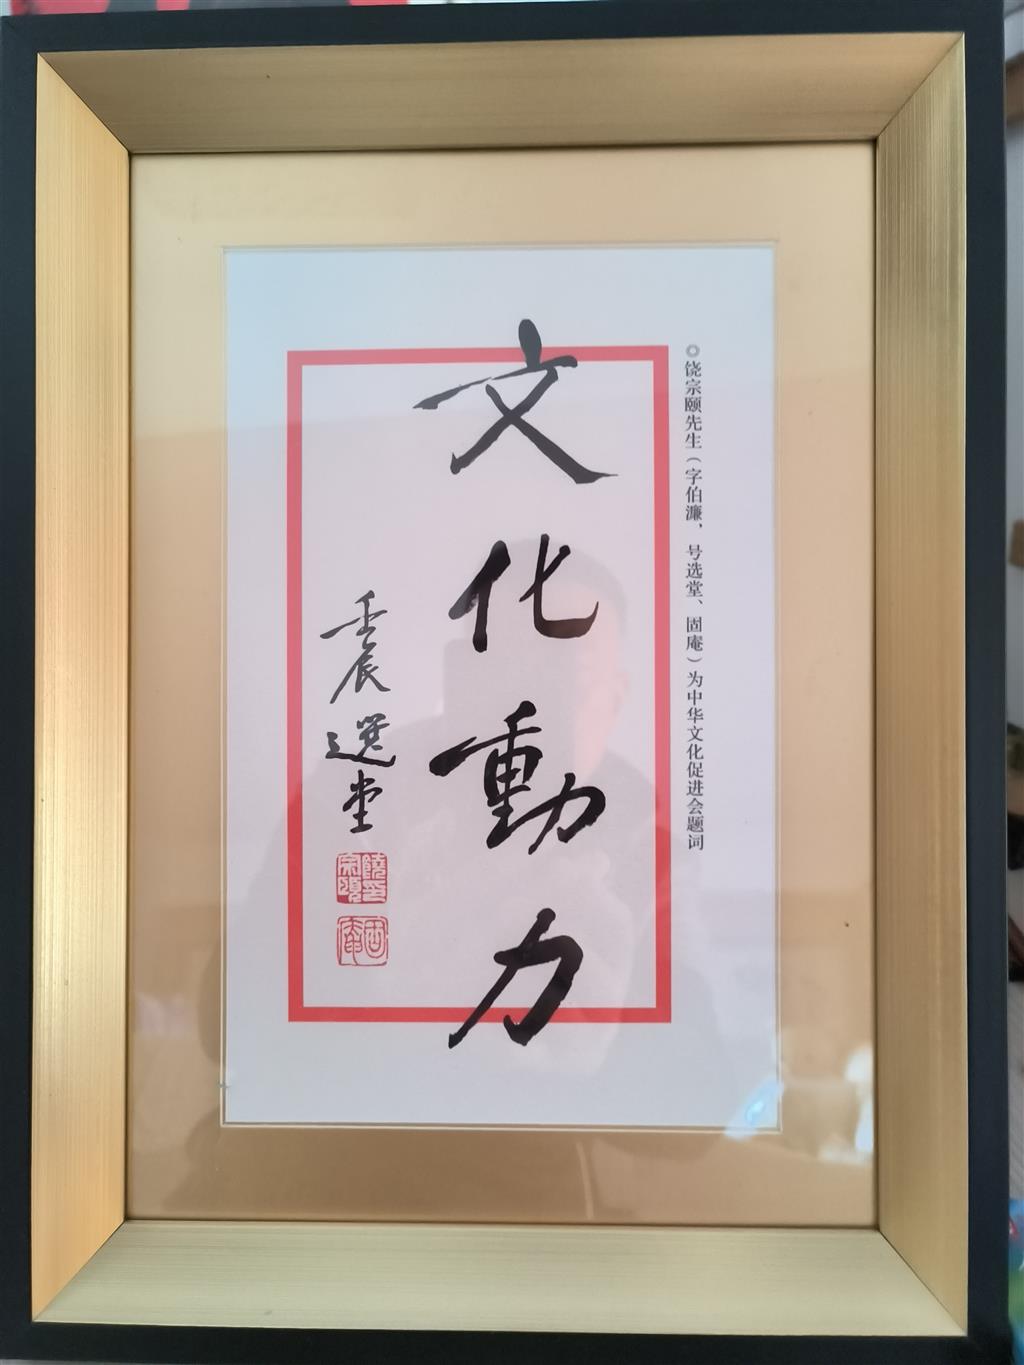 ◎饶宗颐先生（字伯濂，号选堂、固庵）为中华文化促进会题词
文化動力
壬辰選堂
饒宗頤印
固庵